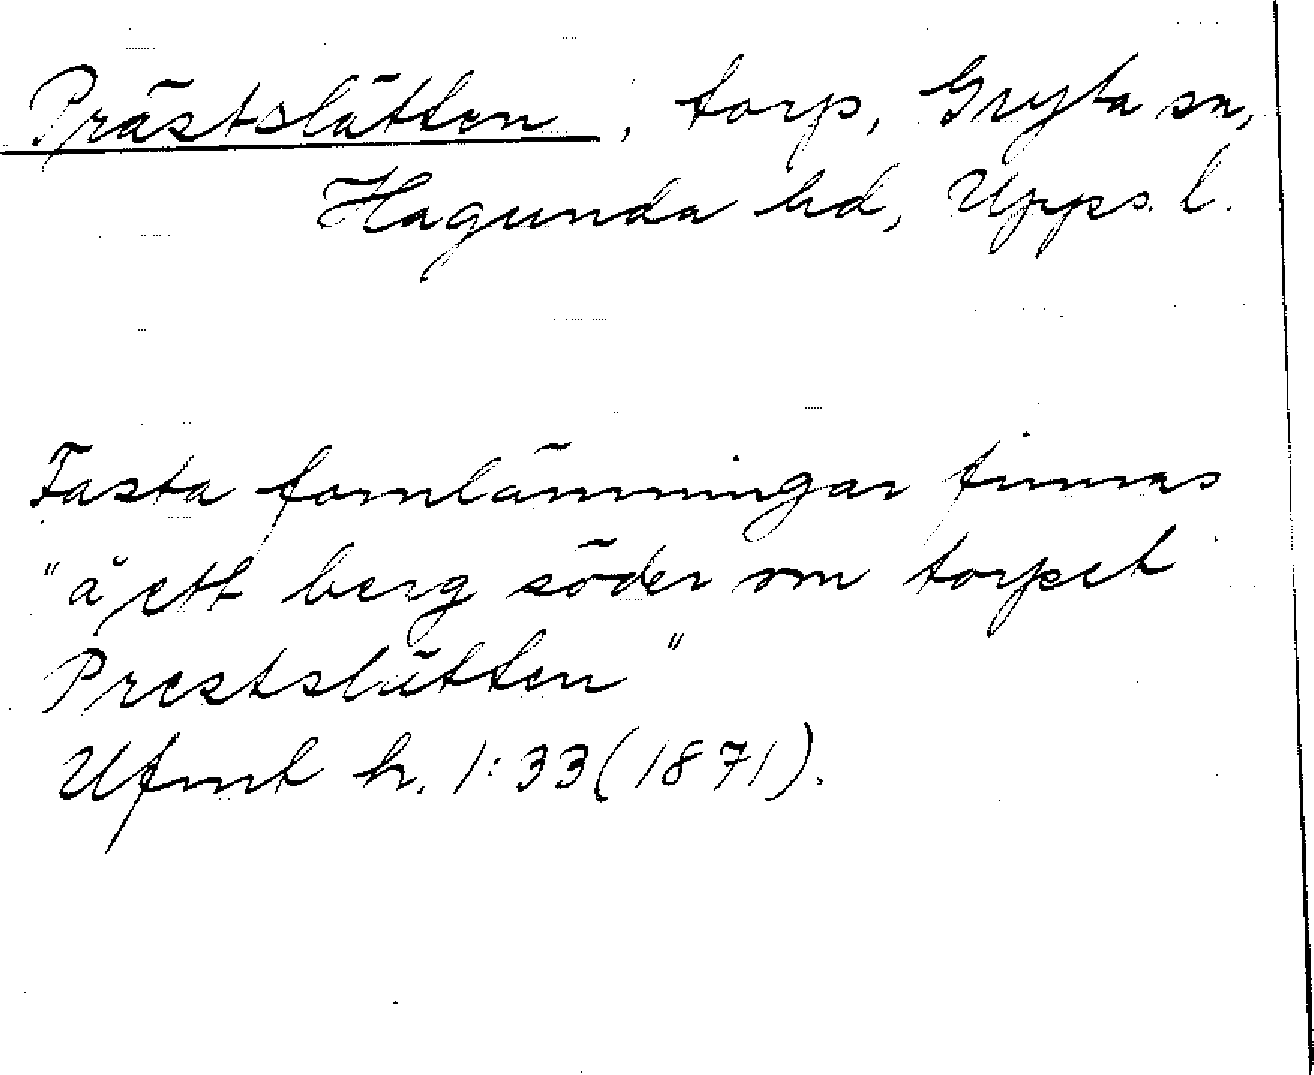 Prästslätten, torp, Gryta sn,
Hagunda hd, Upps. l.
Fasta fornlämningar finnas
"å ett berg söder om torpet
Prestslätten"
Ufmt h. 1:33 (1871).